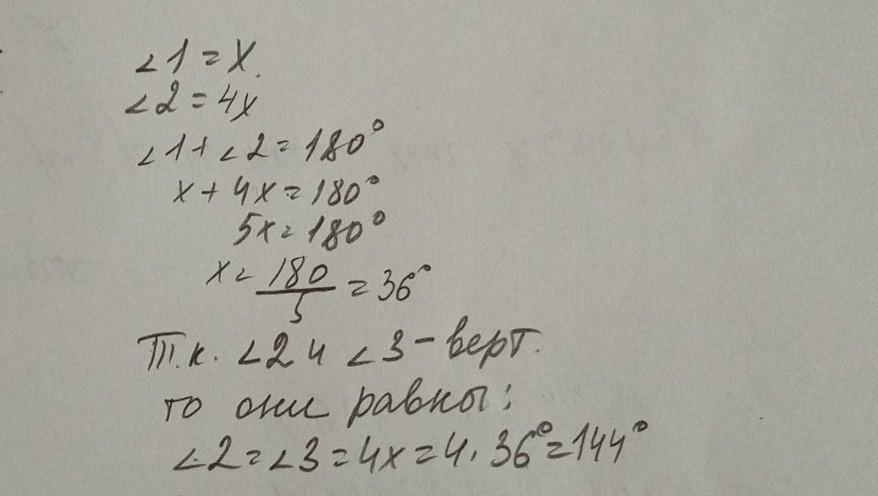 ∠1 = x.
∠2 = 4x
∠1 + ∠2 = 180°
x + 4x = 180°
5x = 180°
x = 180/5 = 36°
Т.к. ∠2 и ∠3 – верт.
то они равны:
∠2 = ∠3 = 4x = 4 · 36° = 144°